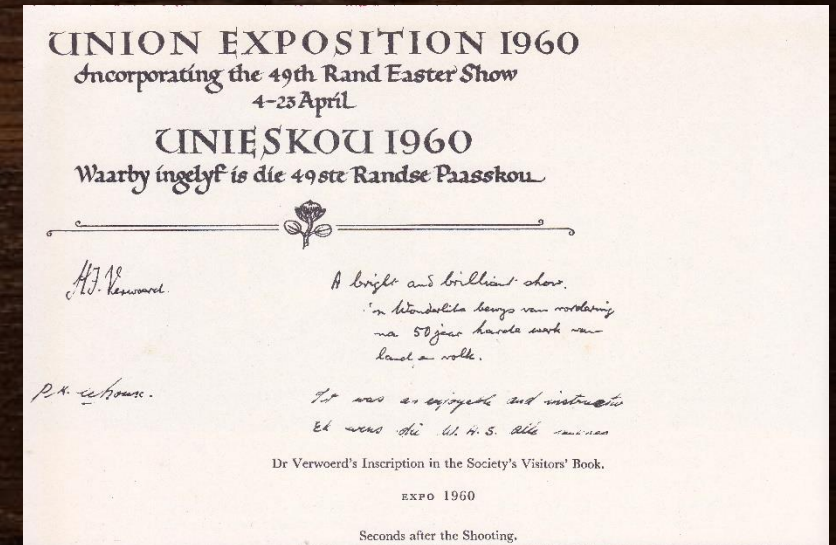 UNION EXPOSITION 1960
Incorporating the 49th Rand Easter Show
4-23 April
UNIESKOU 1960
Waarby ingelyf is die 49ste Randse Paasskou
H.F. Verwoerd.
A bright and brilliant show.
'n Wonderlike bewys van vordering
na 50 jaar harde werk van
land en volk.
P.K.
It was as enjoyable and instructive
Ek wens die W.H.S. alle
Dr Verwoerd's Inscription in the Society's Visitors' Book.
EXPO 1960
Seconds after the Shooting.